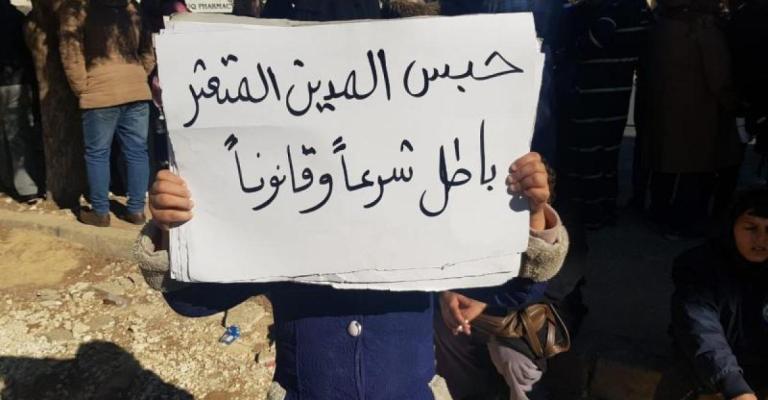 Q PHARMACY
حبس المدين المتعثر
باطل شرعاً وقانوناً